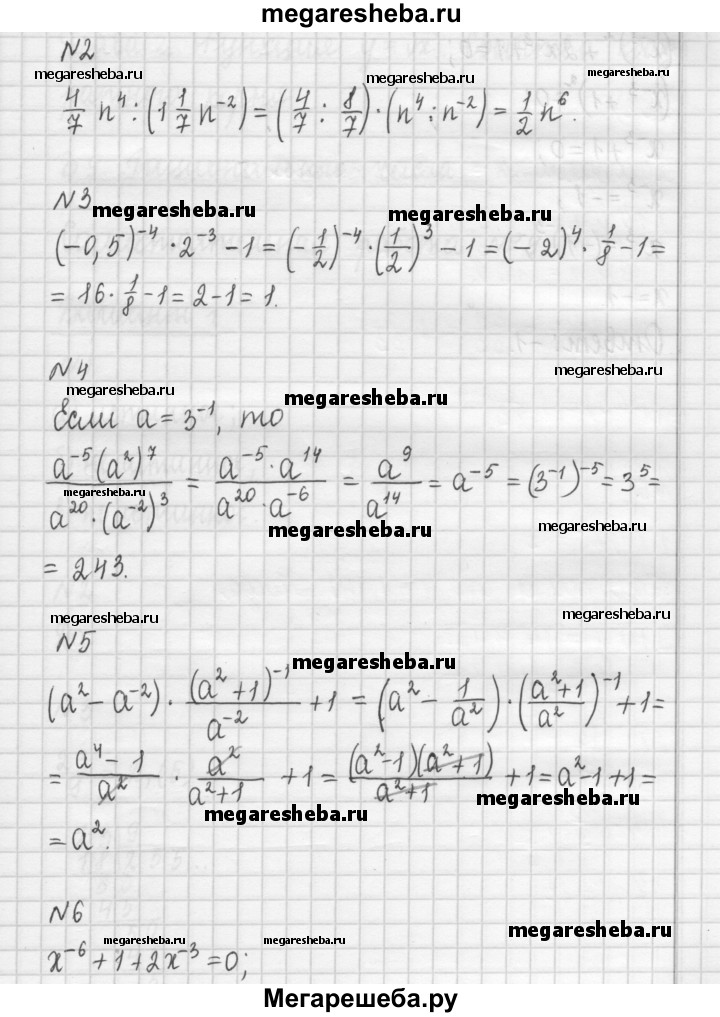 megaresheba.ru
N2
megaresheba.ru megaresheba.ru
4/7 n⁴ : (1 1/7 n⁻²) = (4/7 : 8/7) · (n⁴ : n⁻²) = 1/2 n⁶.
N3
megaresheba.ru megaresheba.ru
(-0,5)⁻⁴ · 2⁻³ - 1 = (-1/2)⁻⁴ · (1/2)³ - 1 = (-2)⁴ · 1/8 - 1 =
= 16 · 1/8 - 1 = 2 - 1 = 1.
N4
megaresheba.ru megaresheba.ru megaresheba.ru
Если a = 3⁻¹, то
a⁻⁵(a²)⁷ / a²⁰·(a⁻²)³ = a⁻⁵·a¹⁴ / a²⁰·a⁻⁶ = a⁹ / a¹⁴ = a⁻⁵ = (3⁻¹)⁻⁵ = 3⁵ =
megaresheba.ru megaresheba.ru megaresheba.ru
= 243.
megaresheba.ru megaresheba.ru
N5
megaresheba.ru
(a² - a⁻²) · (a²+1)⁻¹ / a⁻² + 1 = (a² - 1/a²) · (a²+1 / a²)⁻¹ + 1 =
= a⁴ - 1 / a² · a² / a²+1 + 1 = (a²-1)(a²+1) / a²+1 + 1 = a² - 1 + 1 =
megaresheba.ru megaresheba.ru
= a².
N6
megaresheba.ru megaresheba.ru megaresheba.ru
x⁻⁶ + 1 + 2x⁻³ = 0;
Мегарешеба.ру